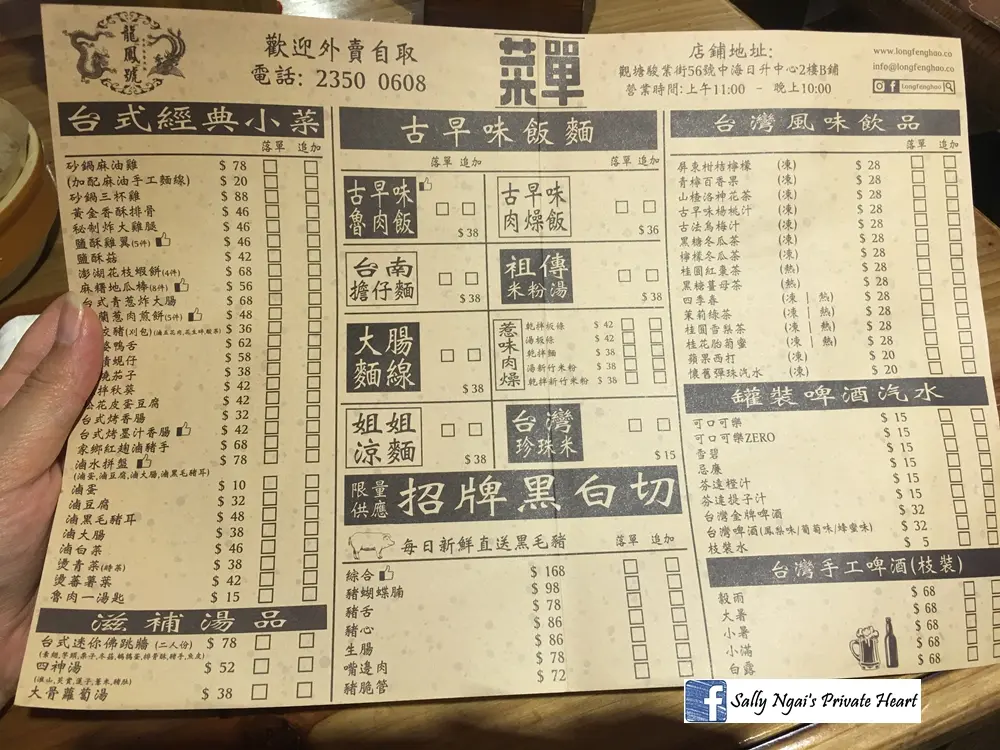 龍鳳號
歡迎外賣自取
電話: 2350 0608
菜單
店鋪地址:
觀塘駿業街56號中海日升中心2樓B鋪
營業時間:上午11:00 - 晚上10:00
www.longfenghao.co
info@longfenghao.co
longfenghao
台式經典小菜
落單 追加
砂鍋麻油雞 $ 78
(加配麻油手工麵線) $ 20
砂鍋三杯雞 $ 88
黃金香酥排骨 $ 46
秘制炸大雞腿 $ 46
鹽酥雞翼(5件) $ 46
鹽酥菇 $ 42
澎湖花枝蝦餅(4件) $ 68
麻糬地瓜棒(8件) $ 56
台式青蔥炸大腸 $ 68
蘭蔥肉煎餅(5件) $ 48
豬(刈包) $ 36
鴨舌 $ 62
蜆仔 $ 58
茄子 $ 38
拌秋葵 $ 42
花皮蛋豆腐 $ 42
台式烤香腸 $ 32
台式烤墨汁香腸 $ 42
家鄉紅麹滷豬手 $ 68
滷水拼盤 $ 78
(滷蛋,滷豆腐,滷大腸,滷黑毛豬耳)
滷蛋 $ 10
滷豆腐 $ 32
滷黑毛豬耳 $ 48
滷大腸 $ 38
滷白菜 $ 46
燙青菜(時菜) $ 38
燙蕃薯葉 $ 42
魯肉一湯匙 $ 15
滋補湯品
台式迷你佛跳牆 (二人份) $ 78
四神湯 $ 52
大骨蘿蔔湯 $ 38
古早味飯麵
落單 追加 落單 追加
古早味魯肉飯 $ 38
古早味肉燥飯 $ 36
台南擔仔麵 $ 38
祖傳米粉湯 $ 38
大腸麵線 $ 38
惹味肉燥
乾拌板條 $ 42
湯板條 $ 42
乾拌麵 $ 38
湯新竹米粉 $ 38
乾拌新竹米粉 $ 38
姐姐涼麵 $ 38
台灣珍珠米 $ 15
限量供應 招牌黑白切
每日新鮮直送黑毛豬 落單 追加
綜合 $ 168
豬蝴蝶腩 $ 98
豬舌 $ 78
豬心 $ 86
生腸 $ 86
嘴邊肉 $ 78
豬脆管 $ 72
台灣風味飲品
落單 追加
屏東柑桔檸檬 (凍) $ 28
青檸百香果 (凍) $ 28
山楂洛神花茶 (凍) $ 28
古早味楊桃汁 (凍) $ 28
古法烏梅汁 (凍) $ 28
黑糖冬瓜茶 (凍) $ 28
檸檬冬瓜茶 (凍) $ 28
桂圓紅棗茶 (熱) $ 28
黑糖薑母茶 (熱) $ 28
四季春 (凍 | 熱) $ 28
茉莉綠茶 (凍 | 熱) $ 28
桂圓雪梨茶 (凍 | 熱) $ 28
桂花胎菊蜜 (凍 | 熱) $ 28
蘋果西打 (凍) $ 20
懷舊彈珠汽水 (凍) $ 20
罐裝啤酒汽水
可口可樂 $ 15
可口可樂ZERO $ 15
雪碧 $ 15
忌廉 $ 15
芬達橙汁 $ 15
芬達提子汁 $ 15
台灣金牌啤酒 $ 32
台灣啤酒(鳳梨味/葡萄味/蜂蜜味) $ 32
枝裝水 $ 5
台灣手工啤酒(枝裝)
穀雨 $ 68
大暑 $ 68
小暑 $ 68
小滿 $ 68
白露 $ 68
Sally Ngai's Private Heart